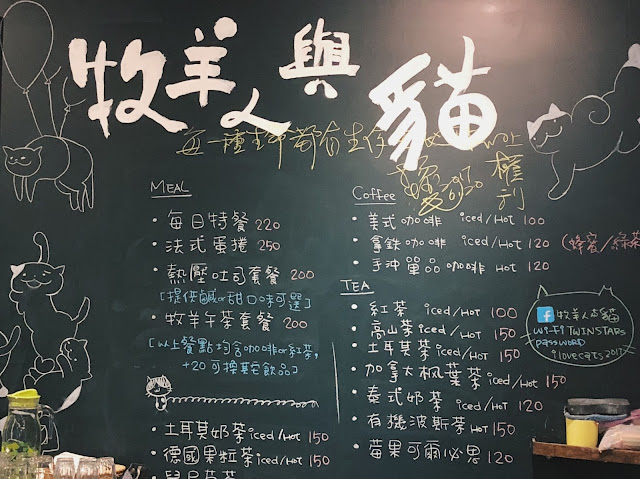 牧羊人與貓
每一種生命都有生存
權利
MEAL
・每日特餐 220
・法式蛋捲 250
・熱壓吐司套餐 200
[提供鹹or甜口味可選]
・牧羊午茶套餐 200
[以上餐點均含咖啡or紅茶,
+20可換其它飲品]
・土耳其奶茶 iced/HOT 150
・德國果粒茶 iced/HOT 150
Coffee
・美式咖啡 iced/HOT 100
・拿鐵咖啡 iced/HOT 120 (蜂蜜/綠茶
・手沖單品咖啡 HOT 120
TEA
・紅茶 iced/HOT 100
・高山茶 iced/HOT 150
・土耳其茶 iced/HOT 150
・加拿大楓葉茶 iced/HOT 150
・泰式奶茶 iced/HOT 120
・有機波斯茶 HOT 150
・莓果可爾必思 120
f 牧羊人與貓
WI-FI TWINSTARS
password
ilovecats2017